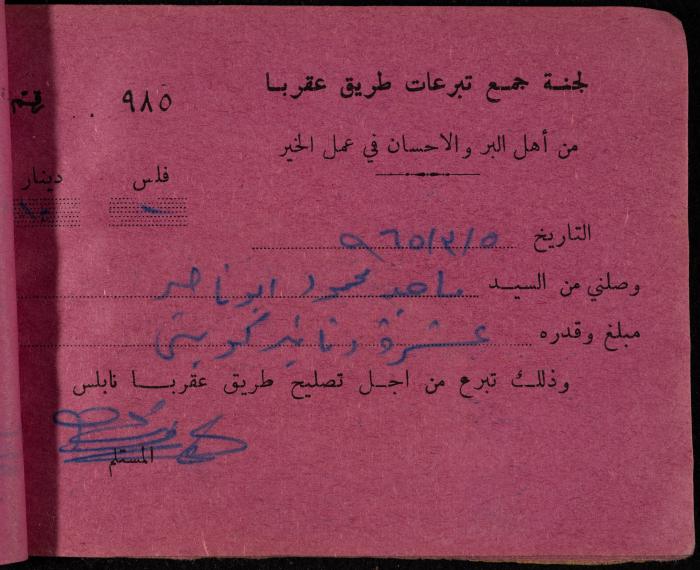 لجنة جمع تبرعات طريق عقربا
٩٨٥
من أهل البر والاحسان في عمل الخير
فلس دينار
التاريخ ٩٦٥/٣/٥
وصلني من السيد ماجد محمود ابو ناصر
مبلغ وقدره عشرة دنانير كويتي
وذلك تبرع من اجل تصليح طريق عقربا نابلس
المستلم